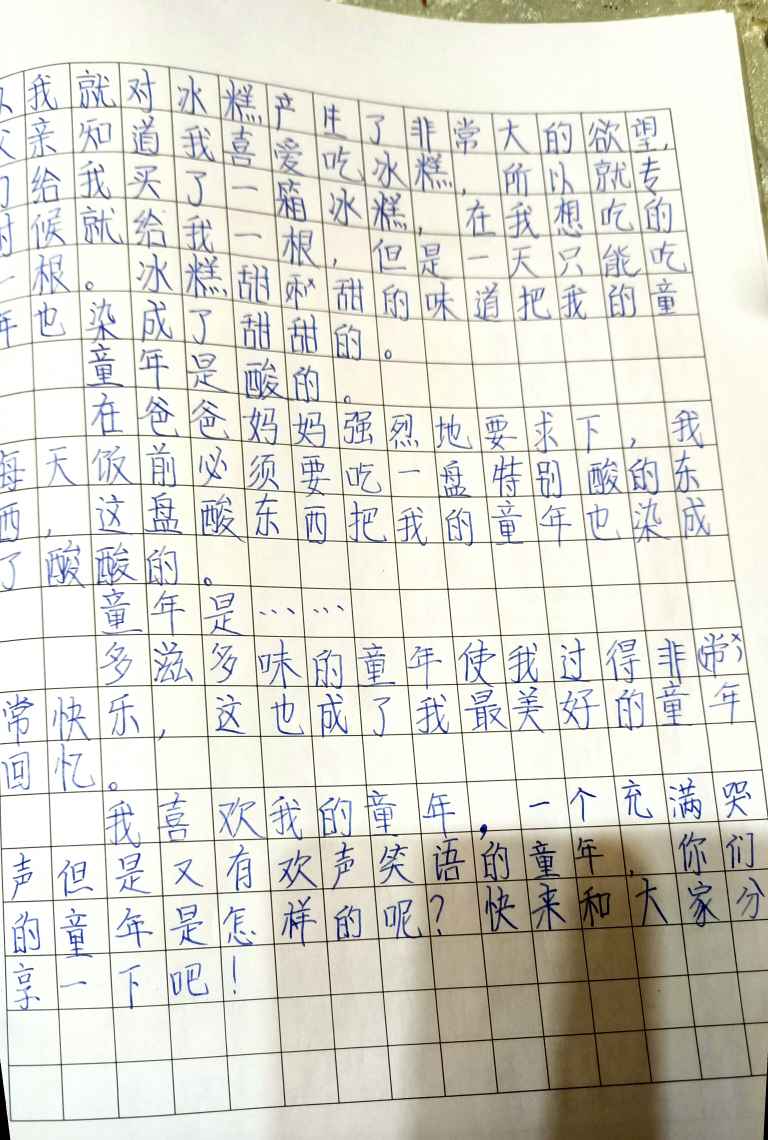 以我就对冰糕产生了非常大的欲望,
父亲知道我喜爱吃冰糕,所以就专
门给我买了一箱冰糕,在我想吃的
时候就给我一根,但是一天只能吃
一根。冰糕甜甜的味道把我的童
年也染成了甜甜的。
童年是酸的。
在爸爸妈妈强烈地要求下,我
每天饭前必须要吃一盘特别酸的东
西,这盘酸东西把我的童年也染成
了酸酸的。
童年是……
多滋多味的童年使我过得非
常快乐,这也成了我最美好的童年
回忆。
我喜欢我的童年,一个充满哭
声但是又有欢声笑语的童年,你们
的童年是怎样的呢?快来和大家分
享一下吧!